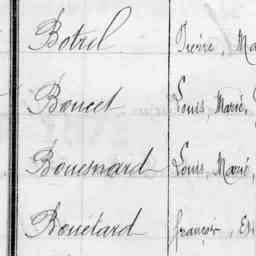 Botrel Pierre, Ma
Boucet Louis, Marie,
Bouesnard Louis, Marie,
Bouétard françois, E